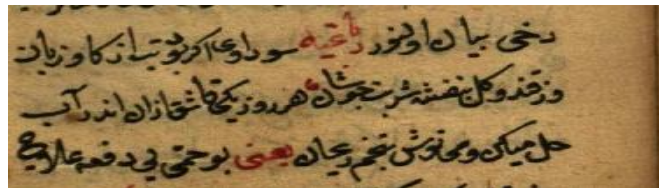 دخی بیان اولنور رباعیه سوداوی اکر بود تب از کاو زبان
وز قند و کل بنفشه شربت جوشان هر روز یکی قاشق ازان اندر آب
حل میکن و می نوش بتخم ریحان یعنی بو حمی یی دفعه علاج